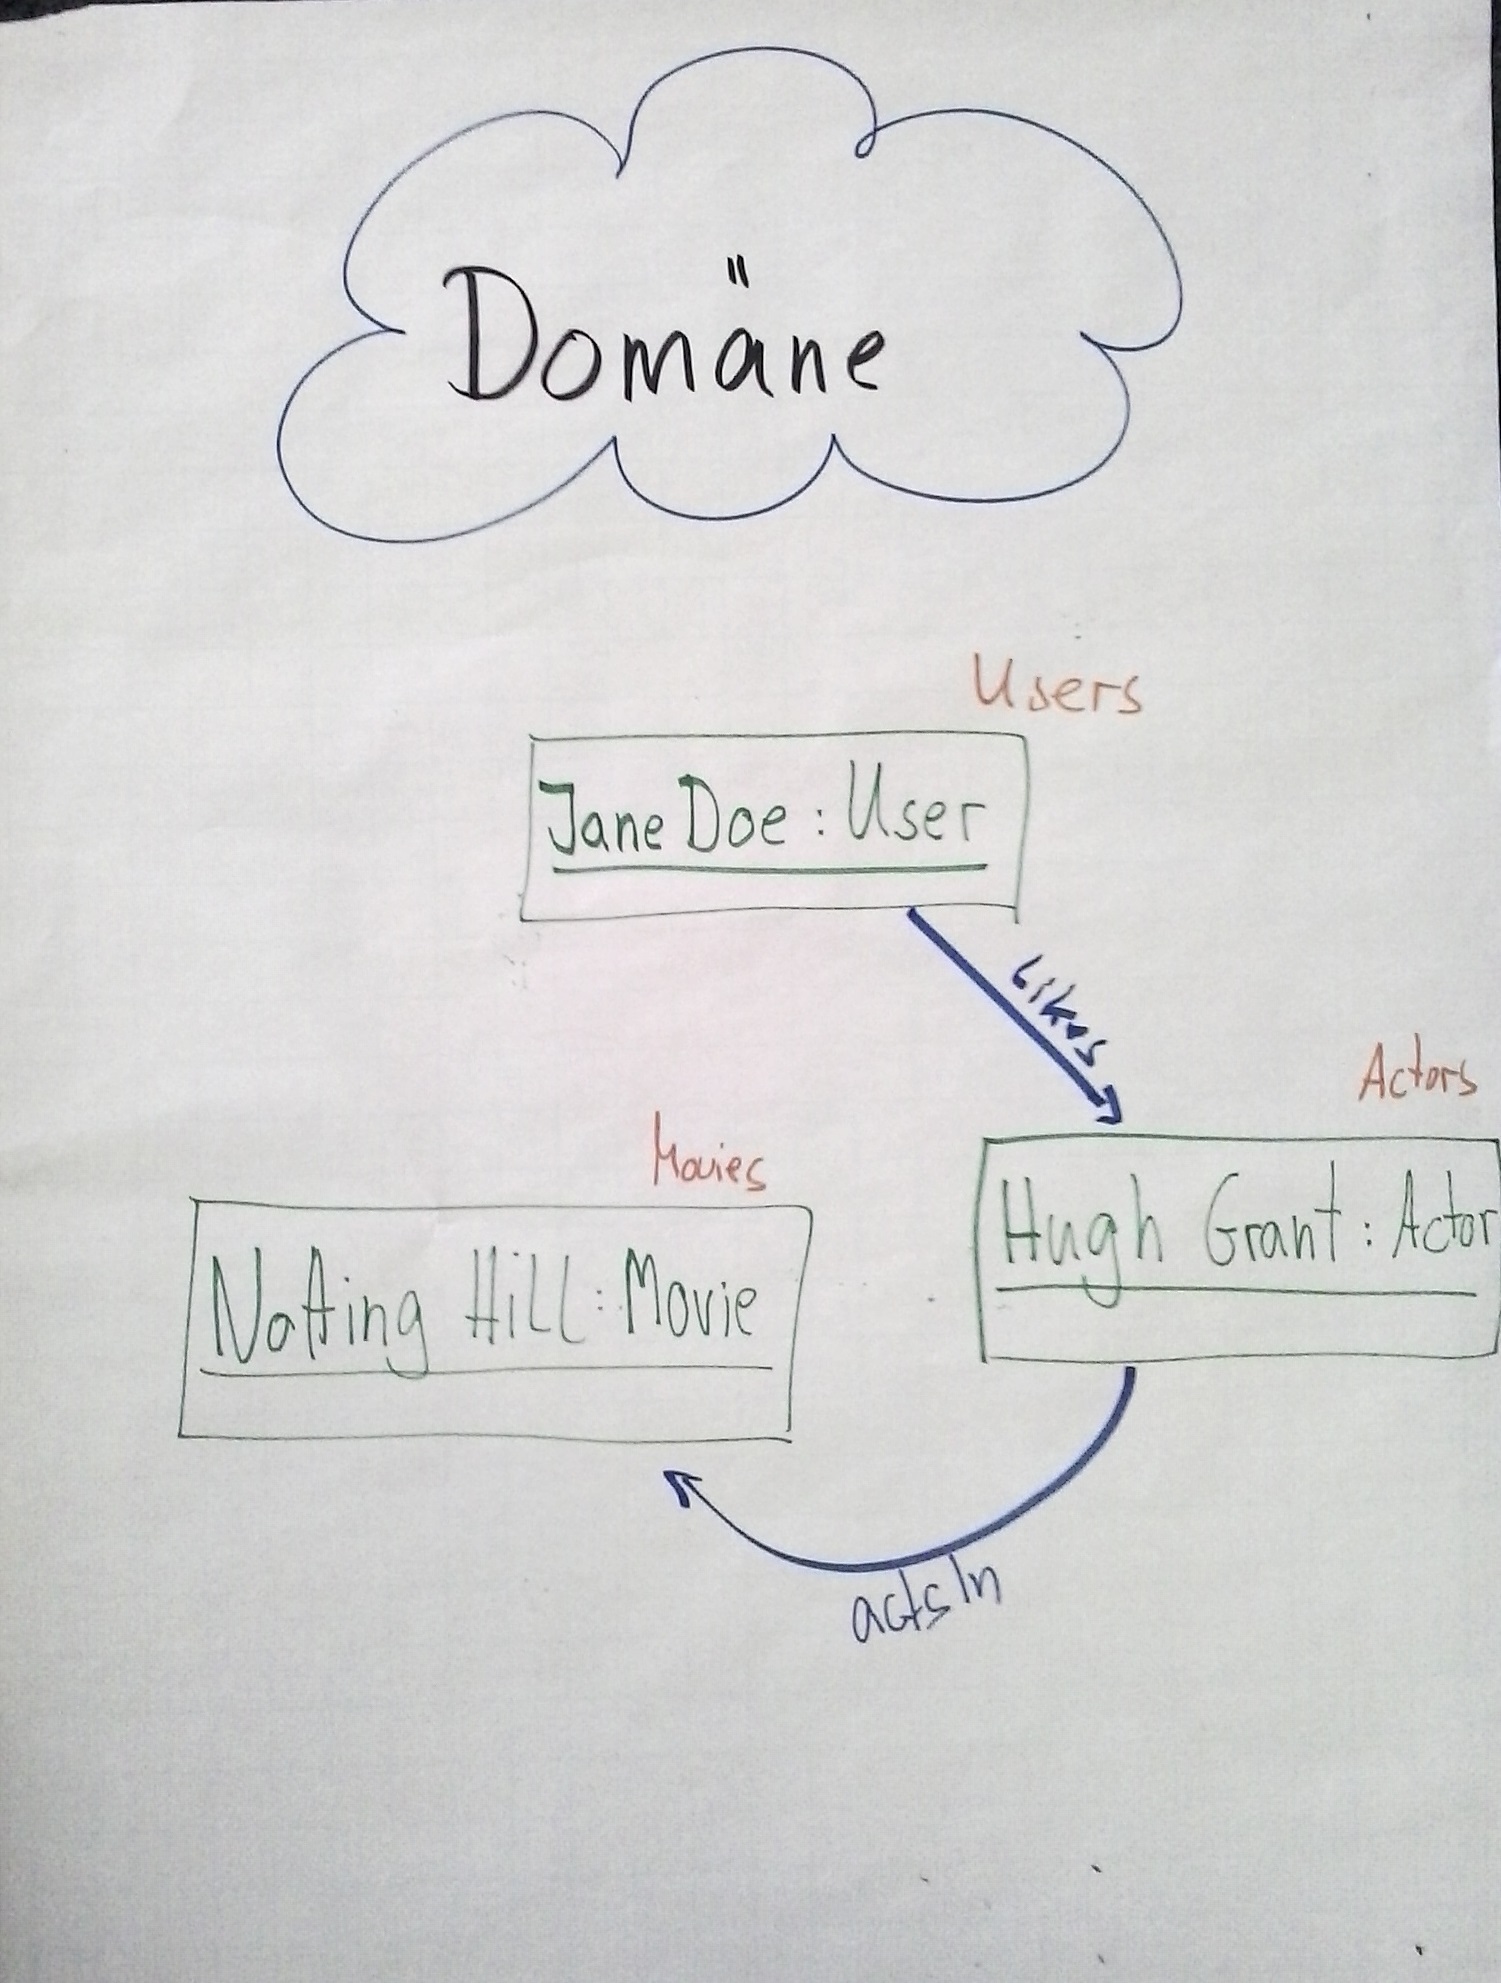 Domäne
Users
Jane Doe : User
Likes
Actors
Hugh Grant : Actor
Movies
Notting Hill : Movie
actsIn